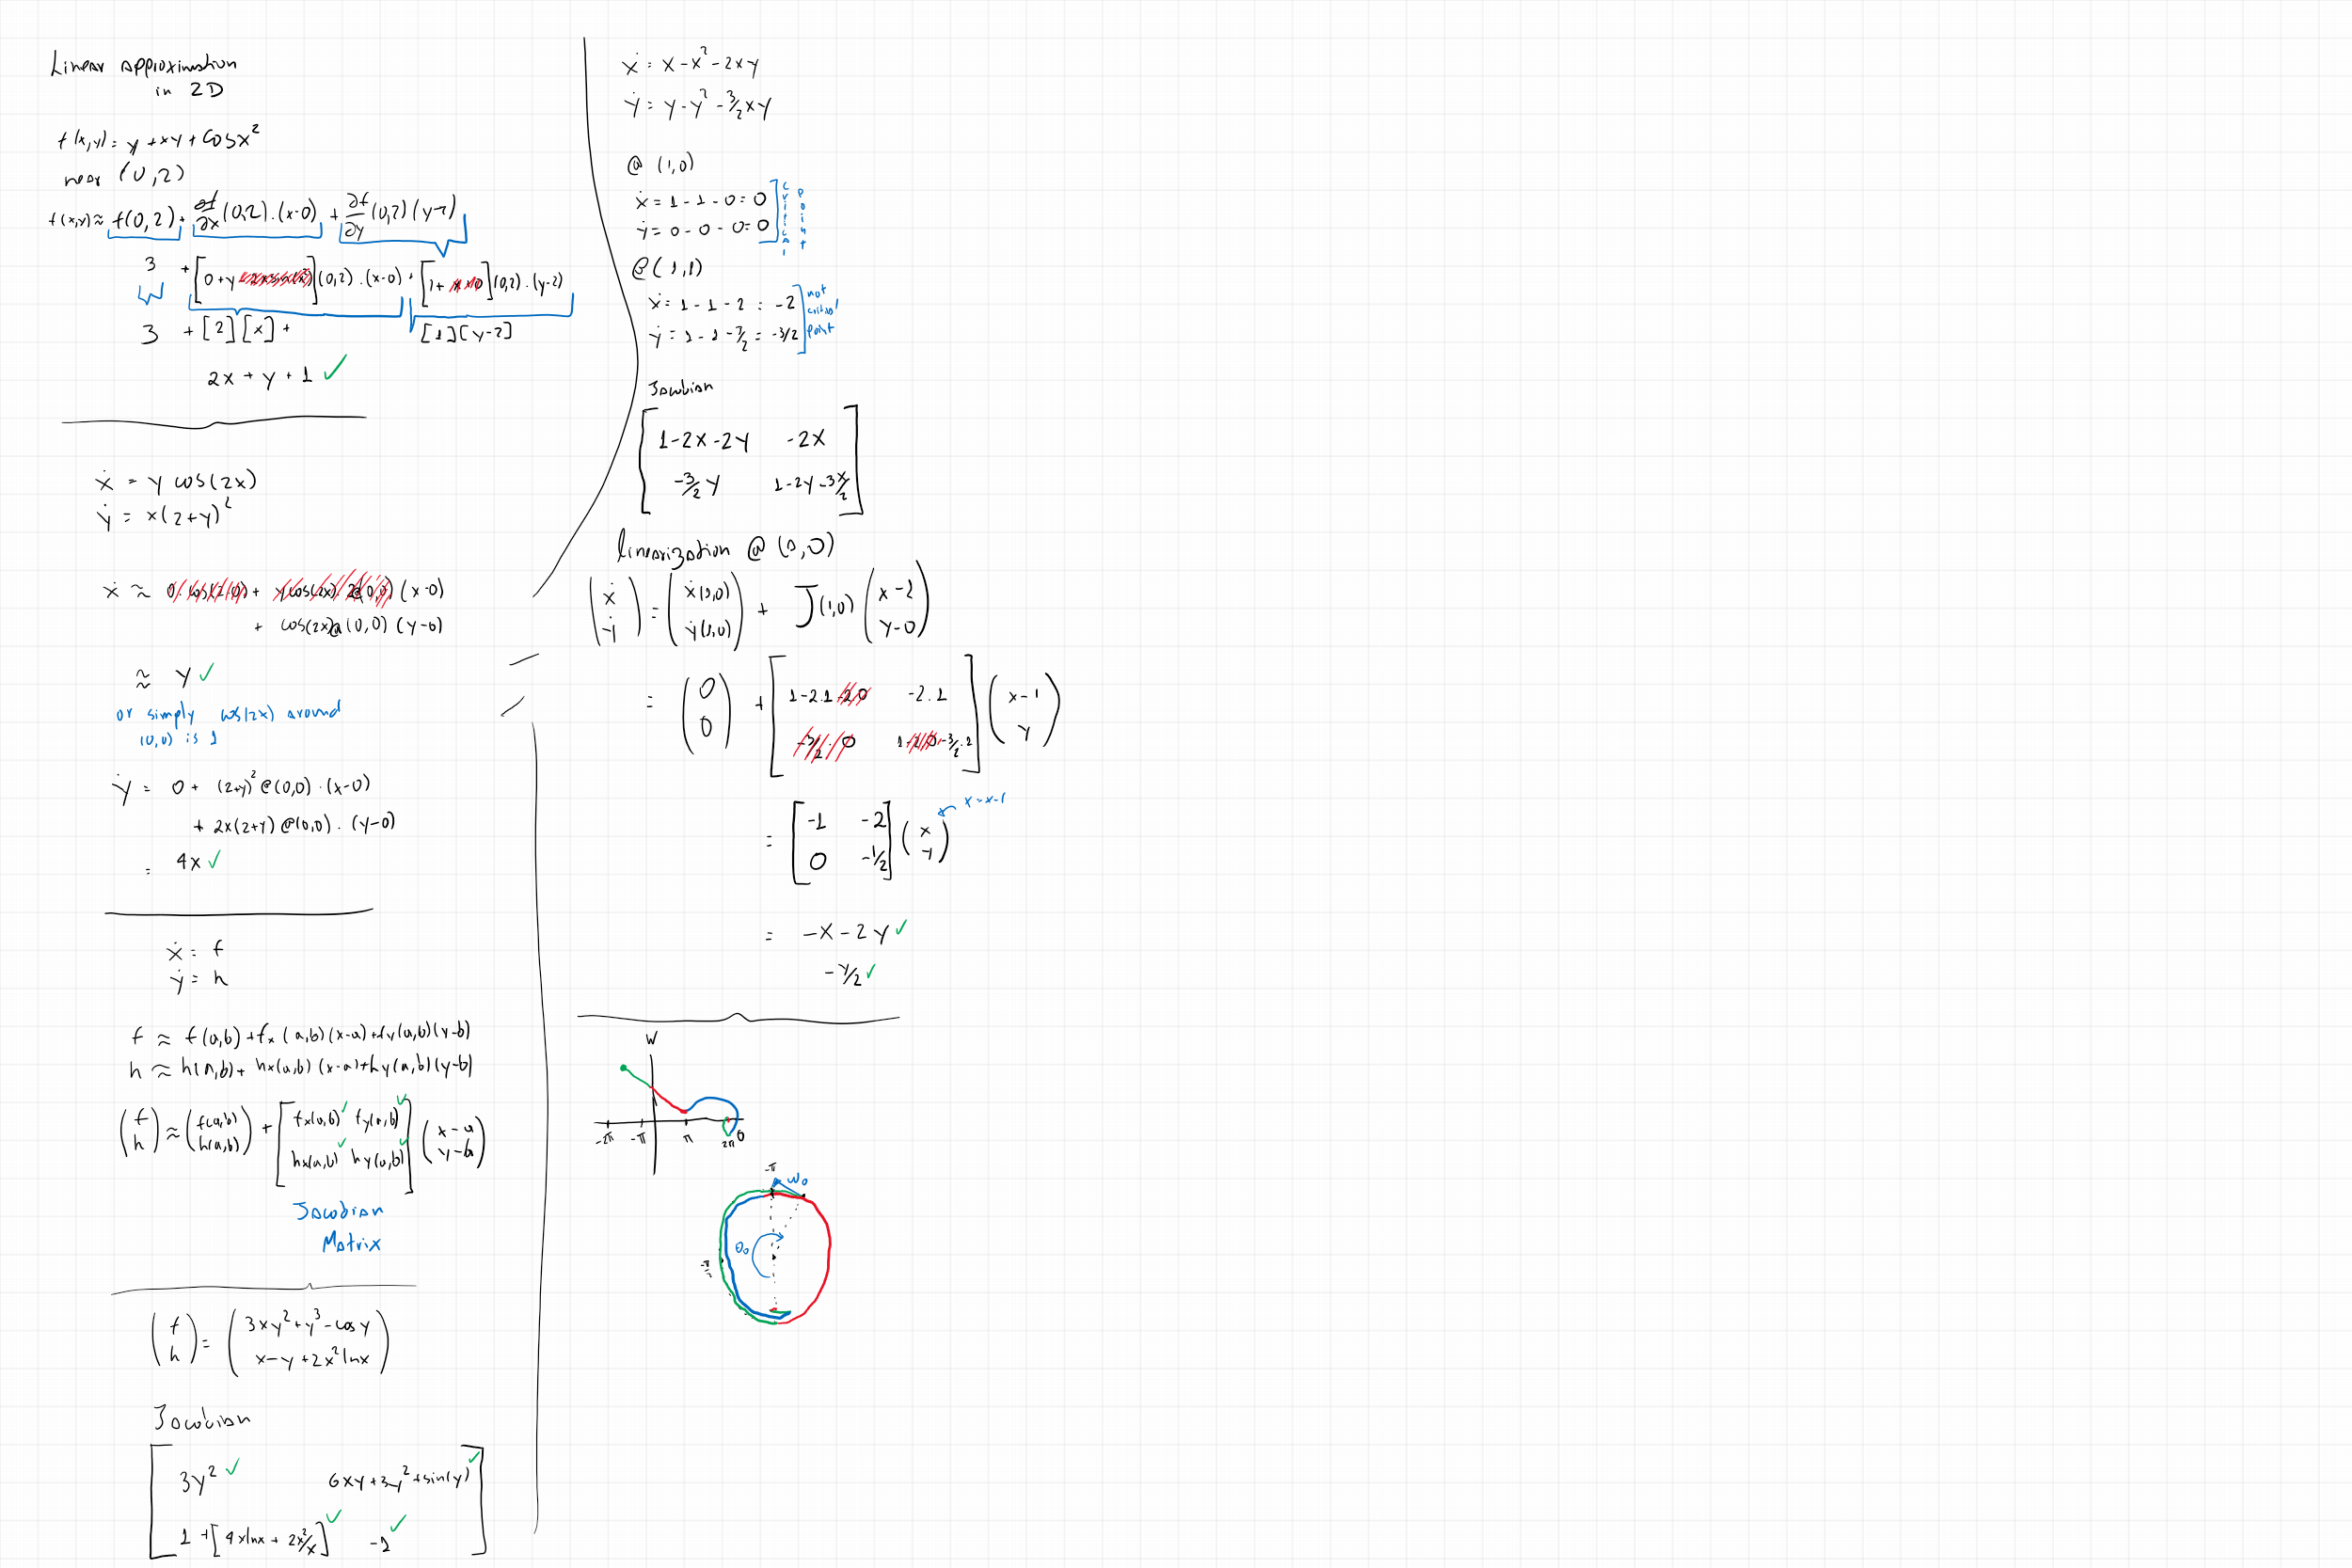 Linear approximation
in 2D
f(x,y) = y + xy + cos x²
near (0,2)
f(x,y) ≈ f(0,2) + ∂f/∂x (0,2).(x-0) + ∂f/∂y (0,2)(y-2)
3 + [0+y ](0,2).(x-0) + [1+ x + 0](0,2).(y-2)
3 + [2][x] + [1][y-2]
2x + y + 1 ✓
ẋ = y cos(2x)
ẏ = x(2+y)²
ẋ ≈ 0.cos(2.0) + (0,0) (x-0)
+ cos(2x)@(0,0) (y-0)
≈ y ✓
or simply cos(2x) around
(0,0) is 1
ẏ = 0 + (2+y)² @(0,0).(x-0)
+ 2x(2+y) @(0,0). (y-0)
= 4x ✓
ẋ = f
ẏ = h
f ≈ f(a,b) + fx (a,b)(x-a) + fy(a,b)(y-b)
h ≈ h(a,b) + hx(a,b) (x-a) + hy(a,b)(y-b)
(f h) ≈ (f(a,b) h(a,b)) + [fx(a,b) ✓ fy(a,b) ✓ hx(a,b) ✓ hy(a,b) ✓] (x-a y-b)
Jacobian
Matrix
(f h) = (3xy² + y³ - cos y x-y + 2x² ln x)
Jacobian
3y² ✓ 6xy + 3y² + sin(y) ✓
1 + [4x ln x + 2x²/x] ✓ -1 ✓
ẋ = x - x² - 2xy
ẏ = y - y² - 3/2 xy
@ (1,0)
ẋ = 1 - 1 - 0 = 0
ẏ = 0 - 0 - 0 = 0
critical point
@ (1,1)
ẋ = 1 - 1 - 2 = -2
ẏ = 1 - 1 - 3/2 = -3/2
not
critical
point
Jacobian
1-2x-2y -2x
-3/2 y 1-2y-3x/2
linearization @ (1,0)
(ẋ ẏ) = (ẋ(1,0) ẏ(1,0)) + J(1,0) (x-1 y-0)
= (0 0) + [1-2.1-2.0 -2.1 -3/2.0 1-2.0-3/2.1] (x-1 y)
= [-1 -2 0 -1/2] (x y) x = x-1
= -x - 2y ✓
-y/2 ✓
W
-2π -π π 2π θ
-π
ω₀
θ₀